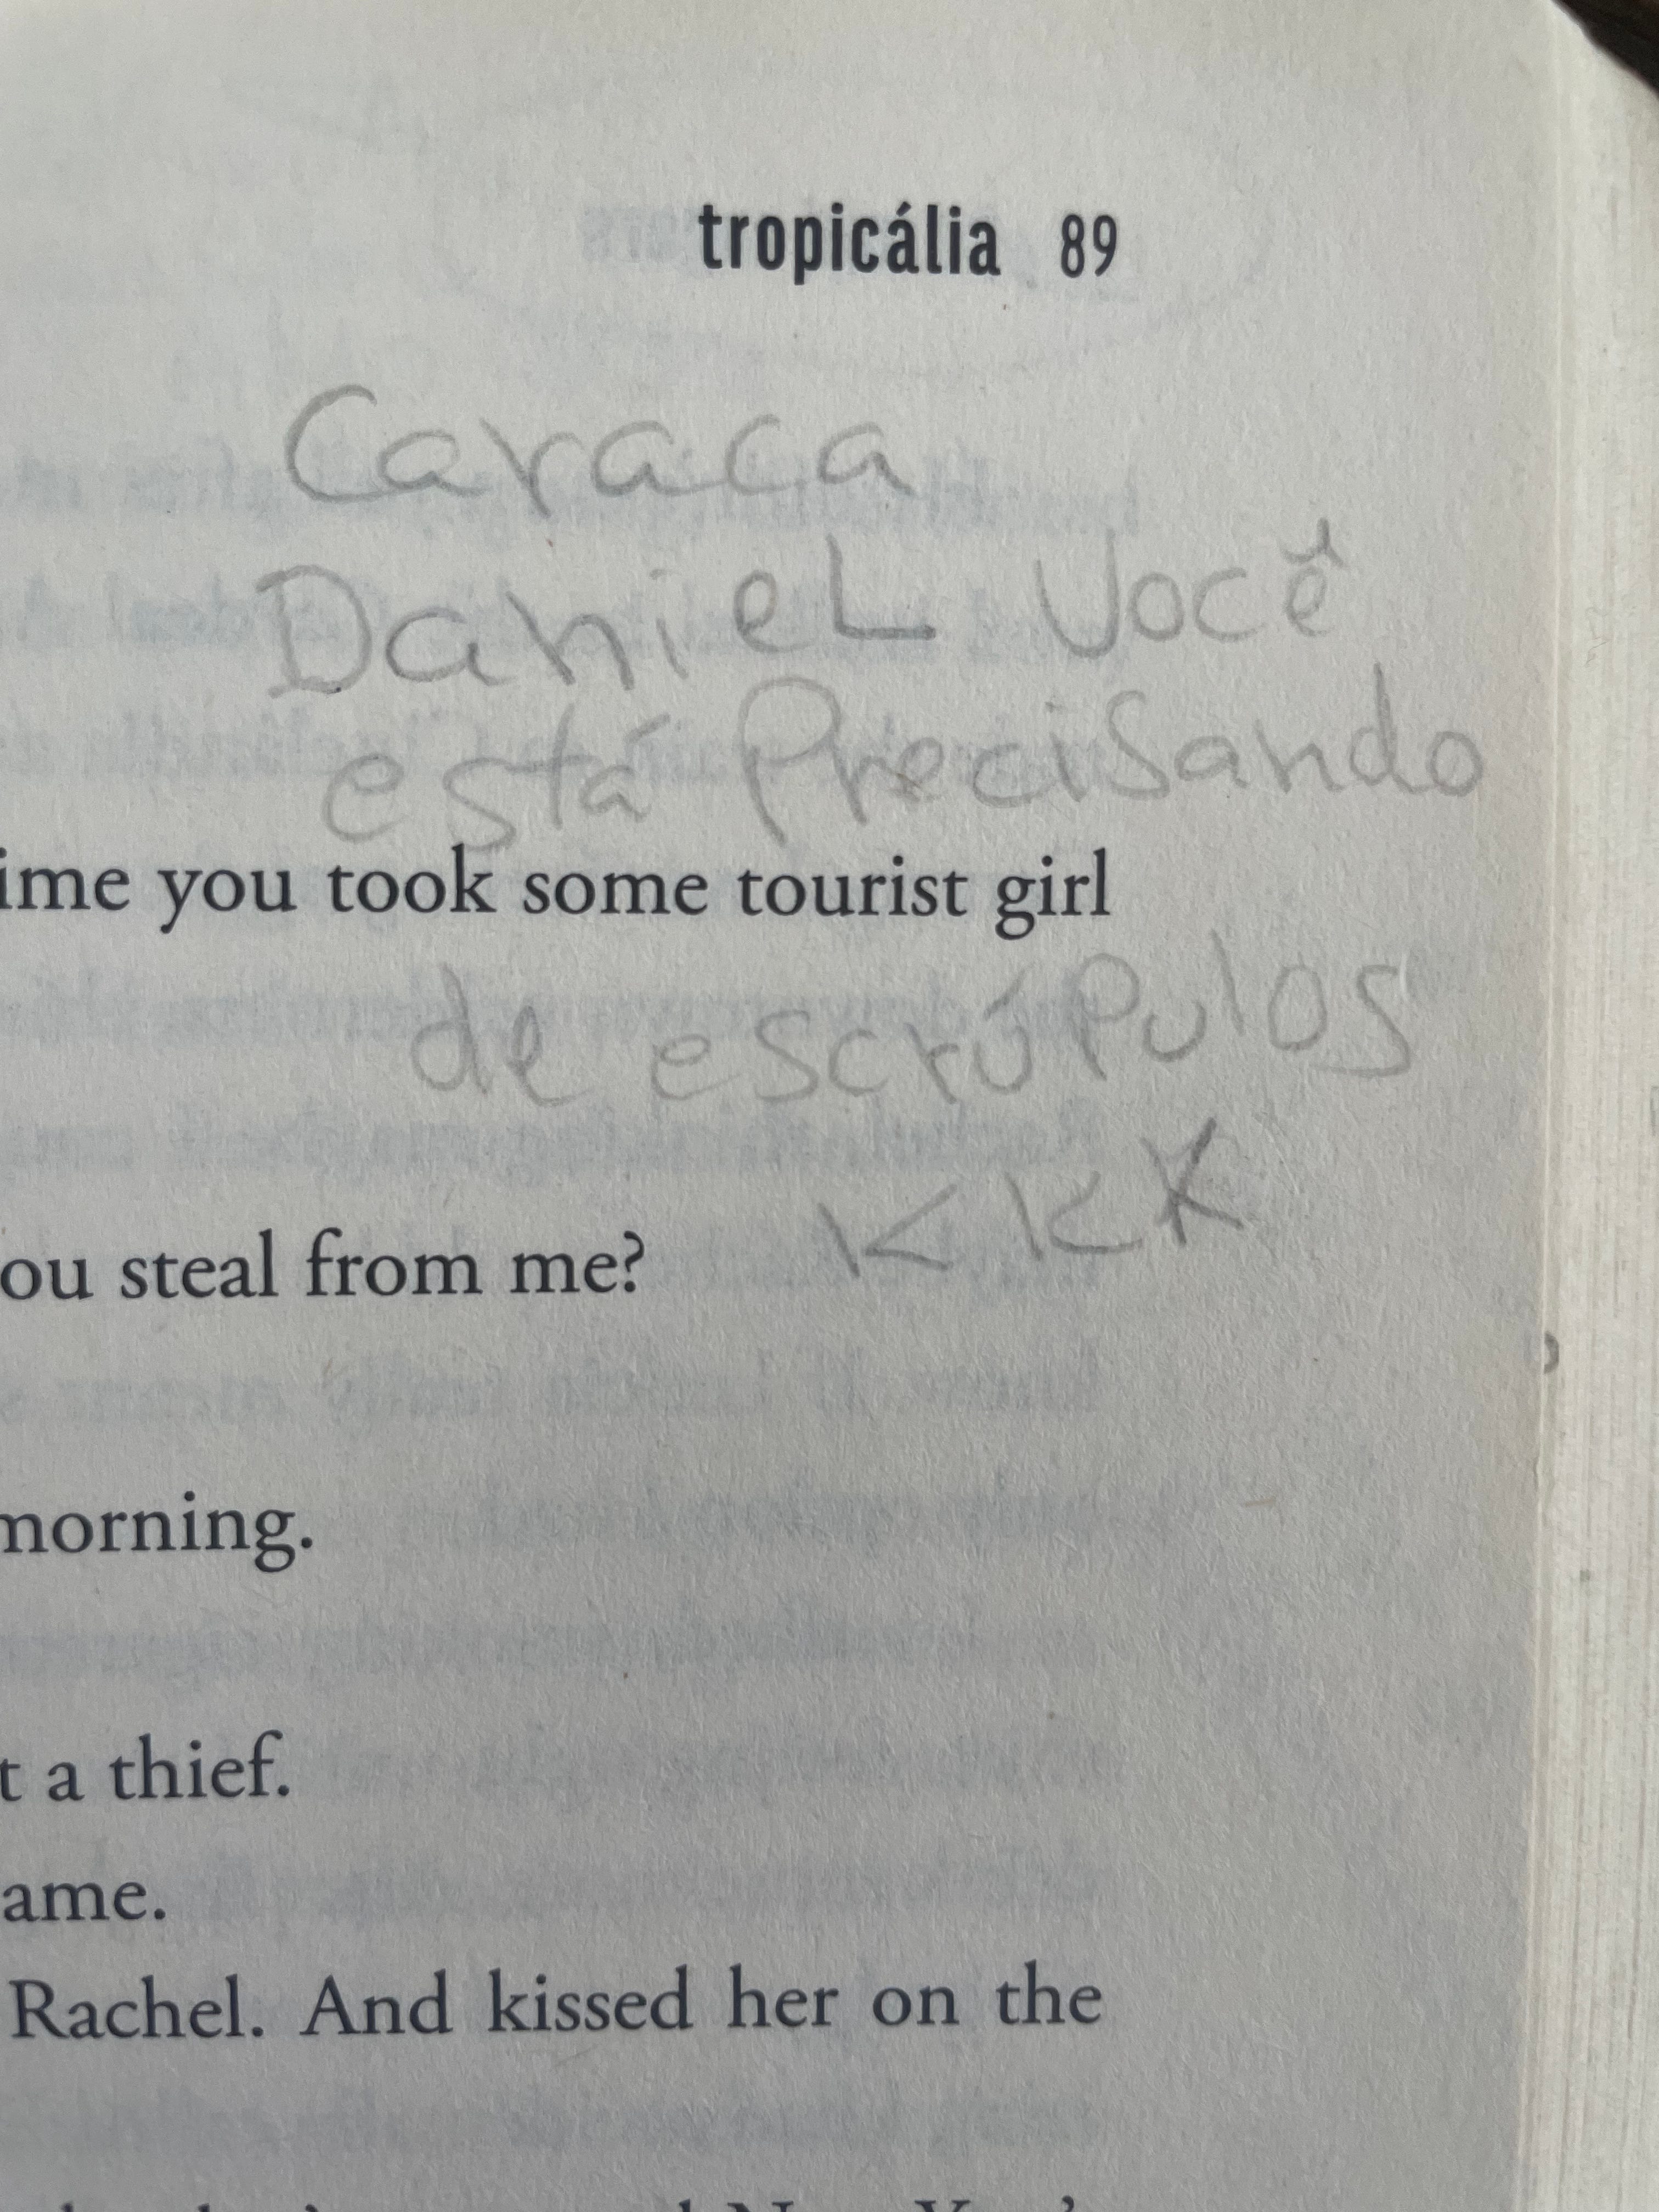 tropicália 89
Caraca
Daniel você
está Precisando
ime you took some tourist girl
de escrúpulos
KKK
ou steal from me?
morning.
t a thief.
ame.
Rachel. And kissed her on the